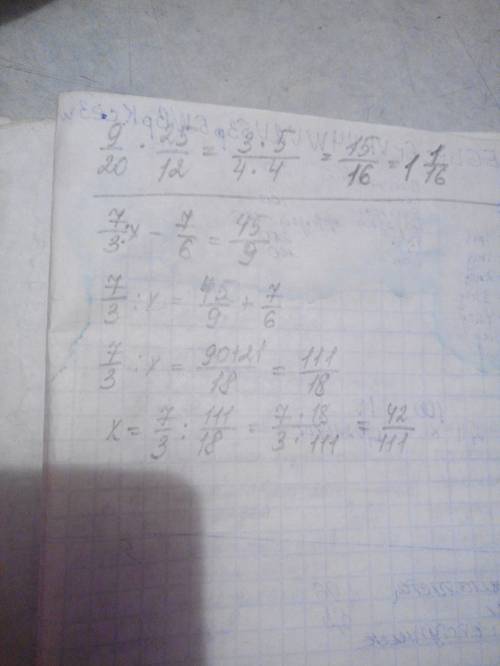 9/20 · 25/12 = 3·5/4·4 = 15/16 = 1 1/16
7/3 : x − 7/6 = 45/9
7/3 : x = 45/9 + 7/6
7/3 : x = 90+21/18 = 111/18
x = 7/3 : 111/18 = 7·18/3·111 = 42/111